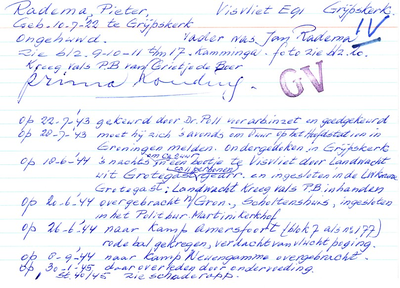 Radema, Pieter. Visvliet E91 Grijpskerk.
Geb. 10-7-22 te Grijpskerk IV
Ongehuwd. Vader was Jan Radema
Zie blz. 9-10-11 t/m 17. Kamminga - foto zie blz. 20.
Kreeg vals P.B. van Grietje de Boer
prima houding. GV
op 22-7-'43 gekeurd door Dr. Poll verarbinzet en goedgekeurd
op 28-7-'43 moet hij zich 's avonds om 9 uur op het Hoofdstation in
Groningen melden. Ondergedoken in Grijpskerk
op 10-6-'44 's nachts in een bootje te Visvliet door Landwacht
uit Grotegast gearr. en ingesloten in de U.L.O. school
Grotegast; Landwacht kreeg vals P.B. in handen
op 20-6-'44 overgebracht n/Gron., Scholtenshuis, ingesloten
in het Politbur. Martinikerkhof
op 26-6-'44 naar Kamp Amersfoort (blok 7 als nr. 177)
rode bal gekregen, verdacht van vluchtpoging.
op 8-9-'44 naar Kamp Neuengamme overgebracht.
op 30-1-'45 daar overleden door ondervoeding.
St. 40/45 Zie schaderapp.